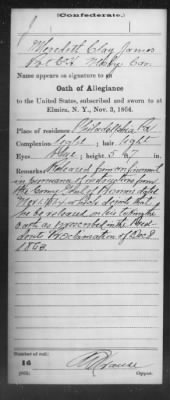 (Confederate.)
J
Meredith Clay James
Pvt Co.
Name appears as signature to an
Oath of Allegiance
to the United States, subscribed and sworn to at
Elmira, N. Y., Nov. 3, 1864.
Place of residence Philadelphia Pa
Complexion light, hair light
Eyes blue; height 5 ft. 7 in.
Remarks: Released from confinement
in pursuance of instructions from
the Comy Genl of Prisoners dated
that
he be released on his taking the
oath as prescribed in the Presi-
dents Proclamation of Dec 8
1863.
Number of roll:
16
Copyist.